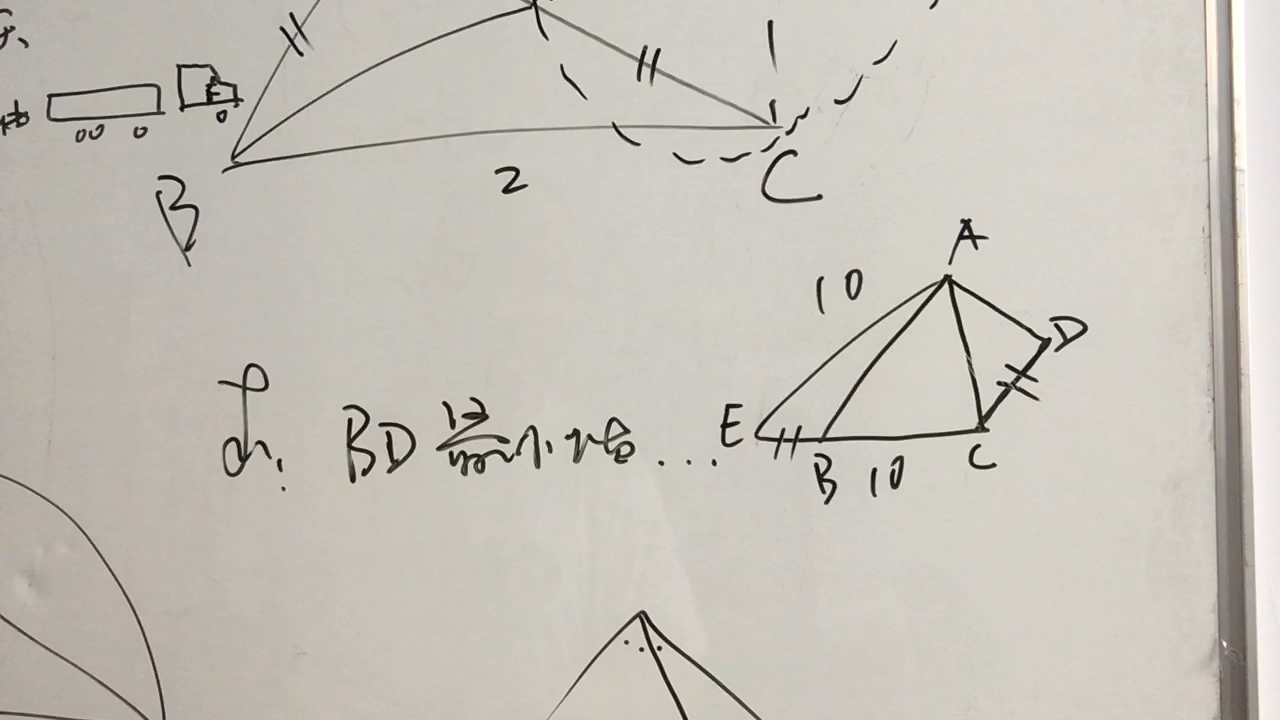 B
2
C
A
10
D
E
B 10
C
BD 最小值...